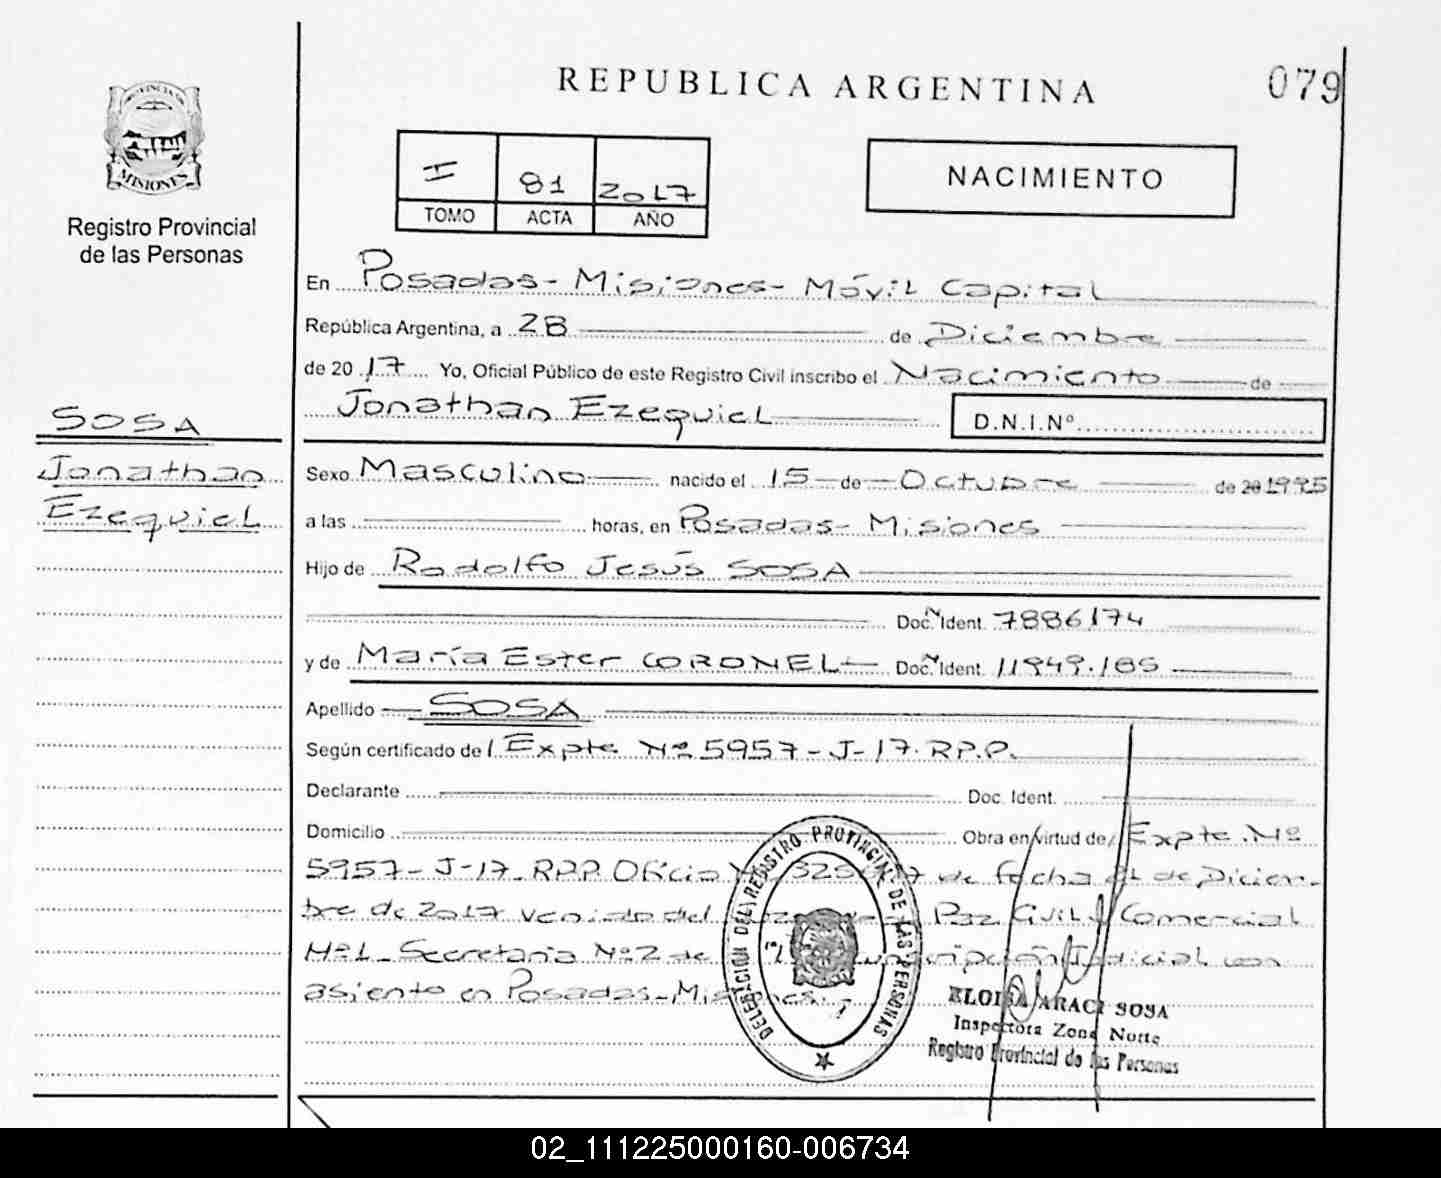 REPUBLICA ARGENTINA
079
PROVINCIA DE
MISIONES
Registro Provincial
de las Personas
I 81 2017
TOMO ACTA AÑO
NACIMIENTO
En Posadas - Misiones - Móvil Capital
República Argentina, a 28 de Diciembre
de 2017 Yo, Oficial Público de este Registro Civil inscribo el Nacimiento de
Jonathan Ezequiel D.N.I.Nº
SOSA
Jonathan
Ezequiel
Sexo Masculino nacido el 15 de Octubre de 20 1995
a las horas, en Posadas - Misiones
Hijo de Rodolfo Jesús SOSA
Doc. Ident. 7886174
y de María Ester CORONEL Doc. Ident. 11949.185
Apellido SOSA
Según certificado de Expte Nº 5957-J-17. R.P.P.
Declarante Doc. Ident.
Domicilio Obra en virtud de Expte. Nº
5957-J-17. R.P.P. Oficio de fecha de Diciem-
bre de 2017 venido del Paz Civil y Comercial
Nº1 Secretaria Nº2 de Judicial con
asiento en Posadas - Misiones.
DELEGACION DEL REGISTRO PROVINCIAL DE LAS PERSONAS
ELOISA ARACI SOSA
Inspectora Zona Norte
Registro Provincial de las Personas
02_111225000160-006734